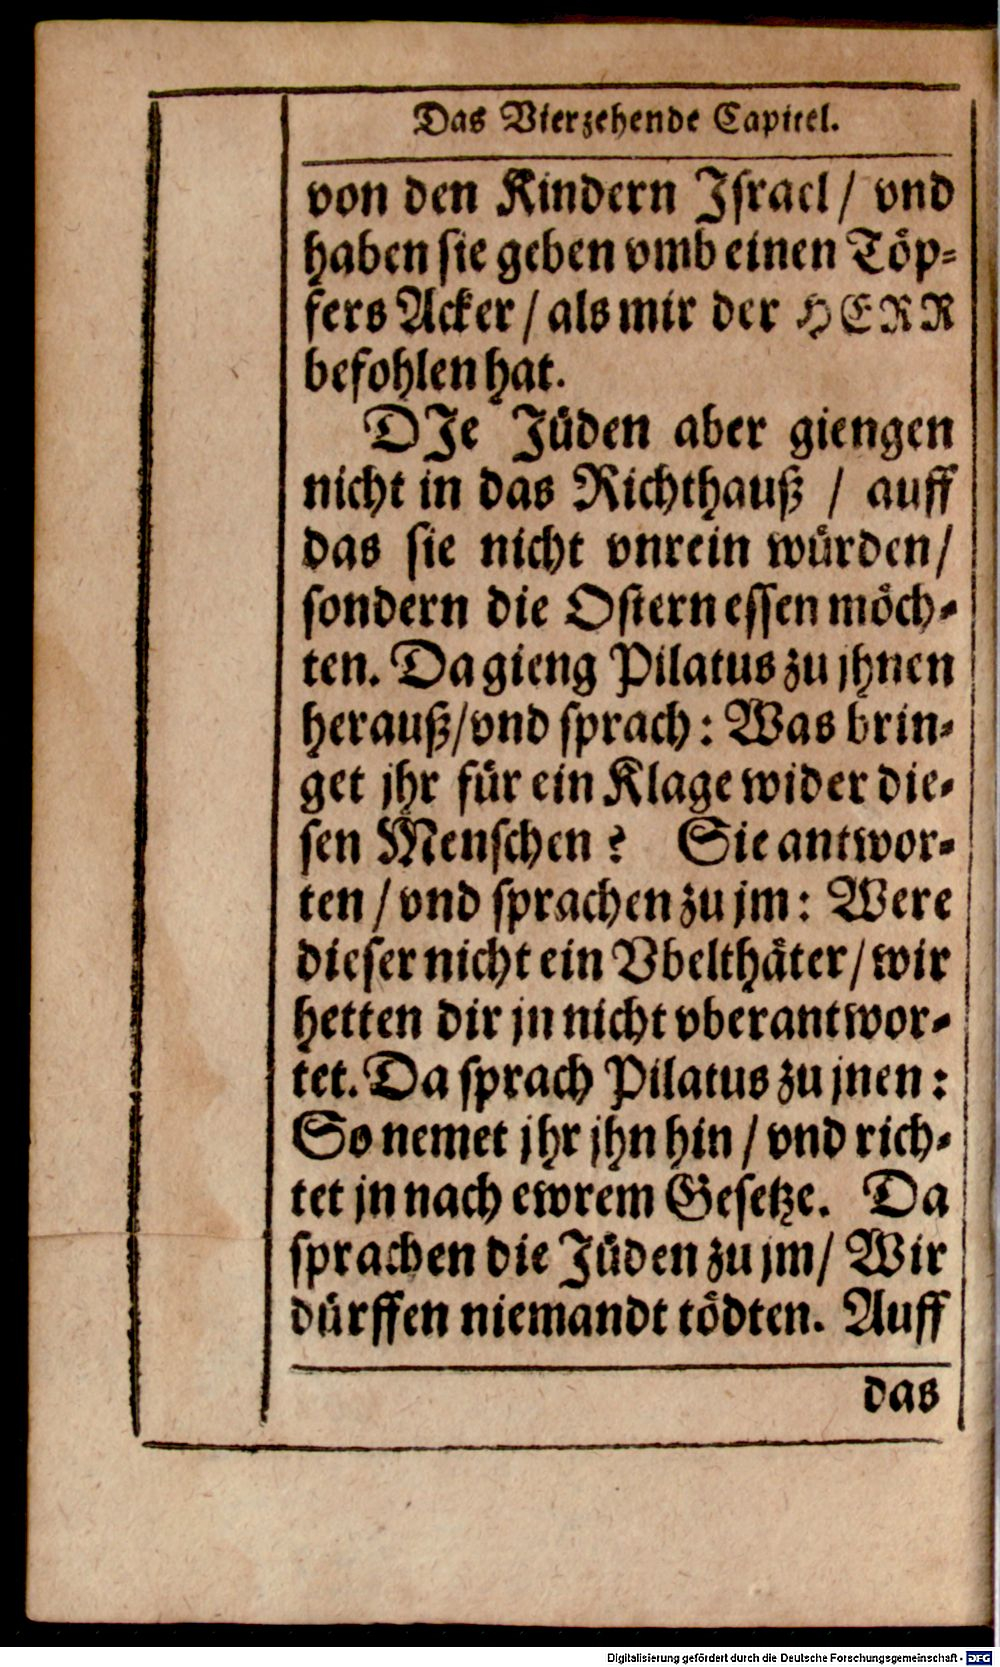 Das Vierzehende Capitel.
von den Kindern Israel / vnd
haben sie geben vmb einen Töp-
fers Acker / als mir der HERR
befohlen hat.
DIe Jüden aber giengen
nicht in das Richthauß / auff
das sie nicht vnrein würden /
sondern die Ostern essen möch-
ten. Da gieng Pilatus zu jhnen
herauß / vnd sprach : Was brin-
get jhr für ein Klage wider die-
sen Menschen ? Sie antwor-
ten / vnd sprachen zu jm : Were
dieser nicht ein Vbelthäter / wir
hetten dir jn nicht vberantwor-
tet. Da sprach Pilatus zu jnen :
So nemet jhr jhn hin / vnd rich-
tet jn nach ewrem Gesetze. Da
sprachen die Jüden zu jm / Wir
dürffen niemandt tödten. Auff
das
Digitalisierung gefördert durch die Deutsche Forschungsgemeinschaft - DFG